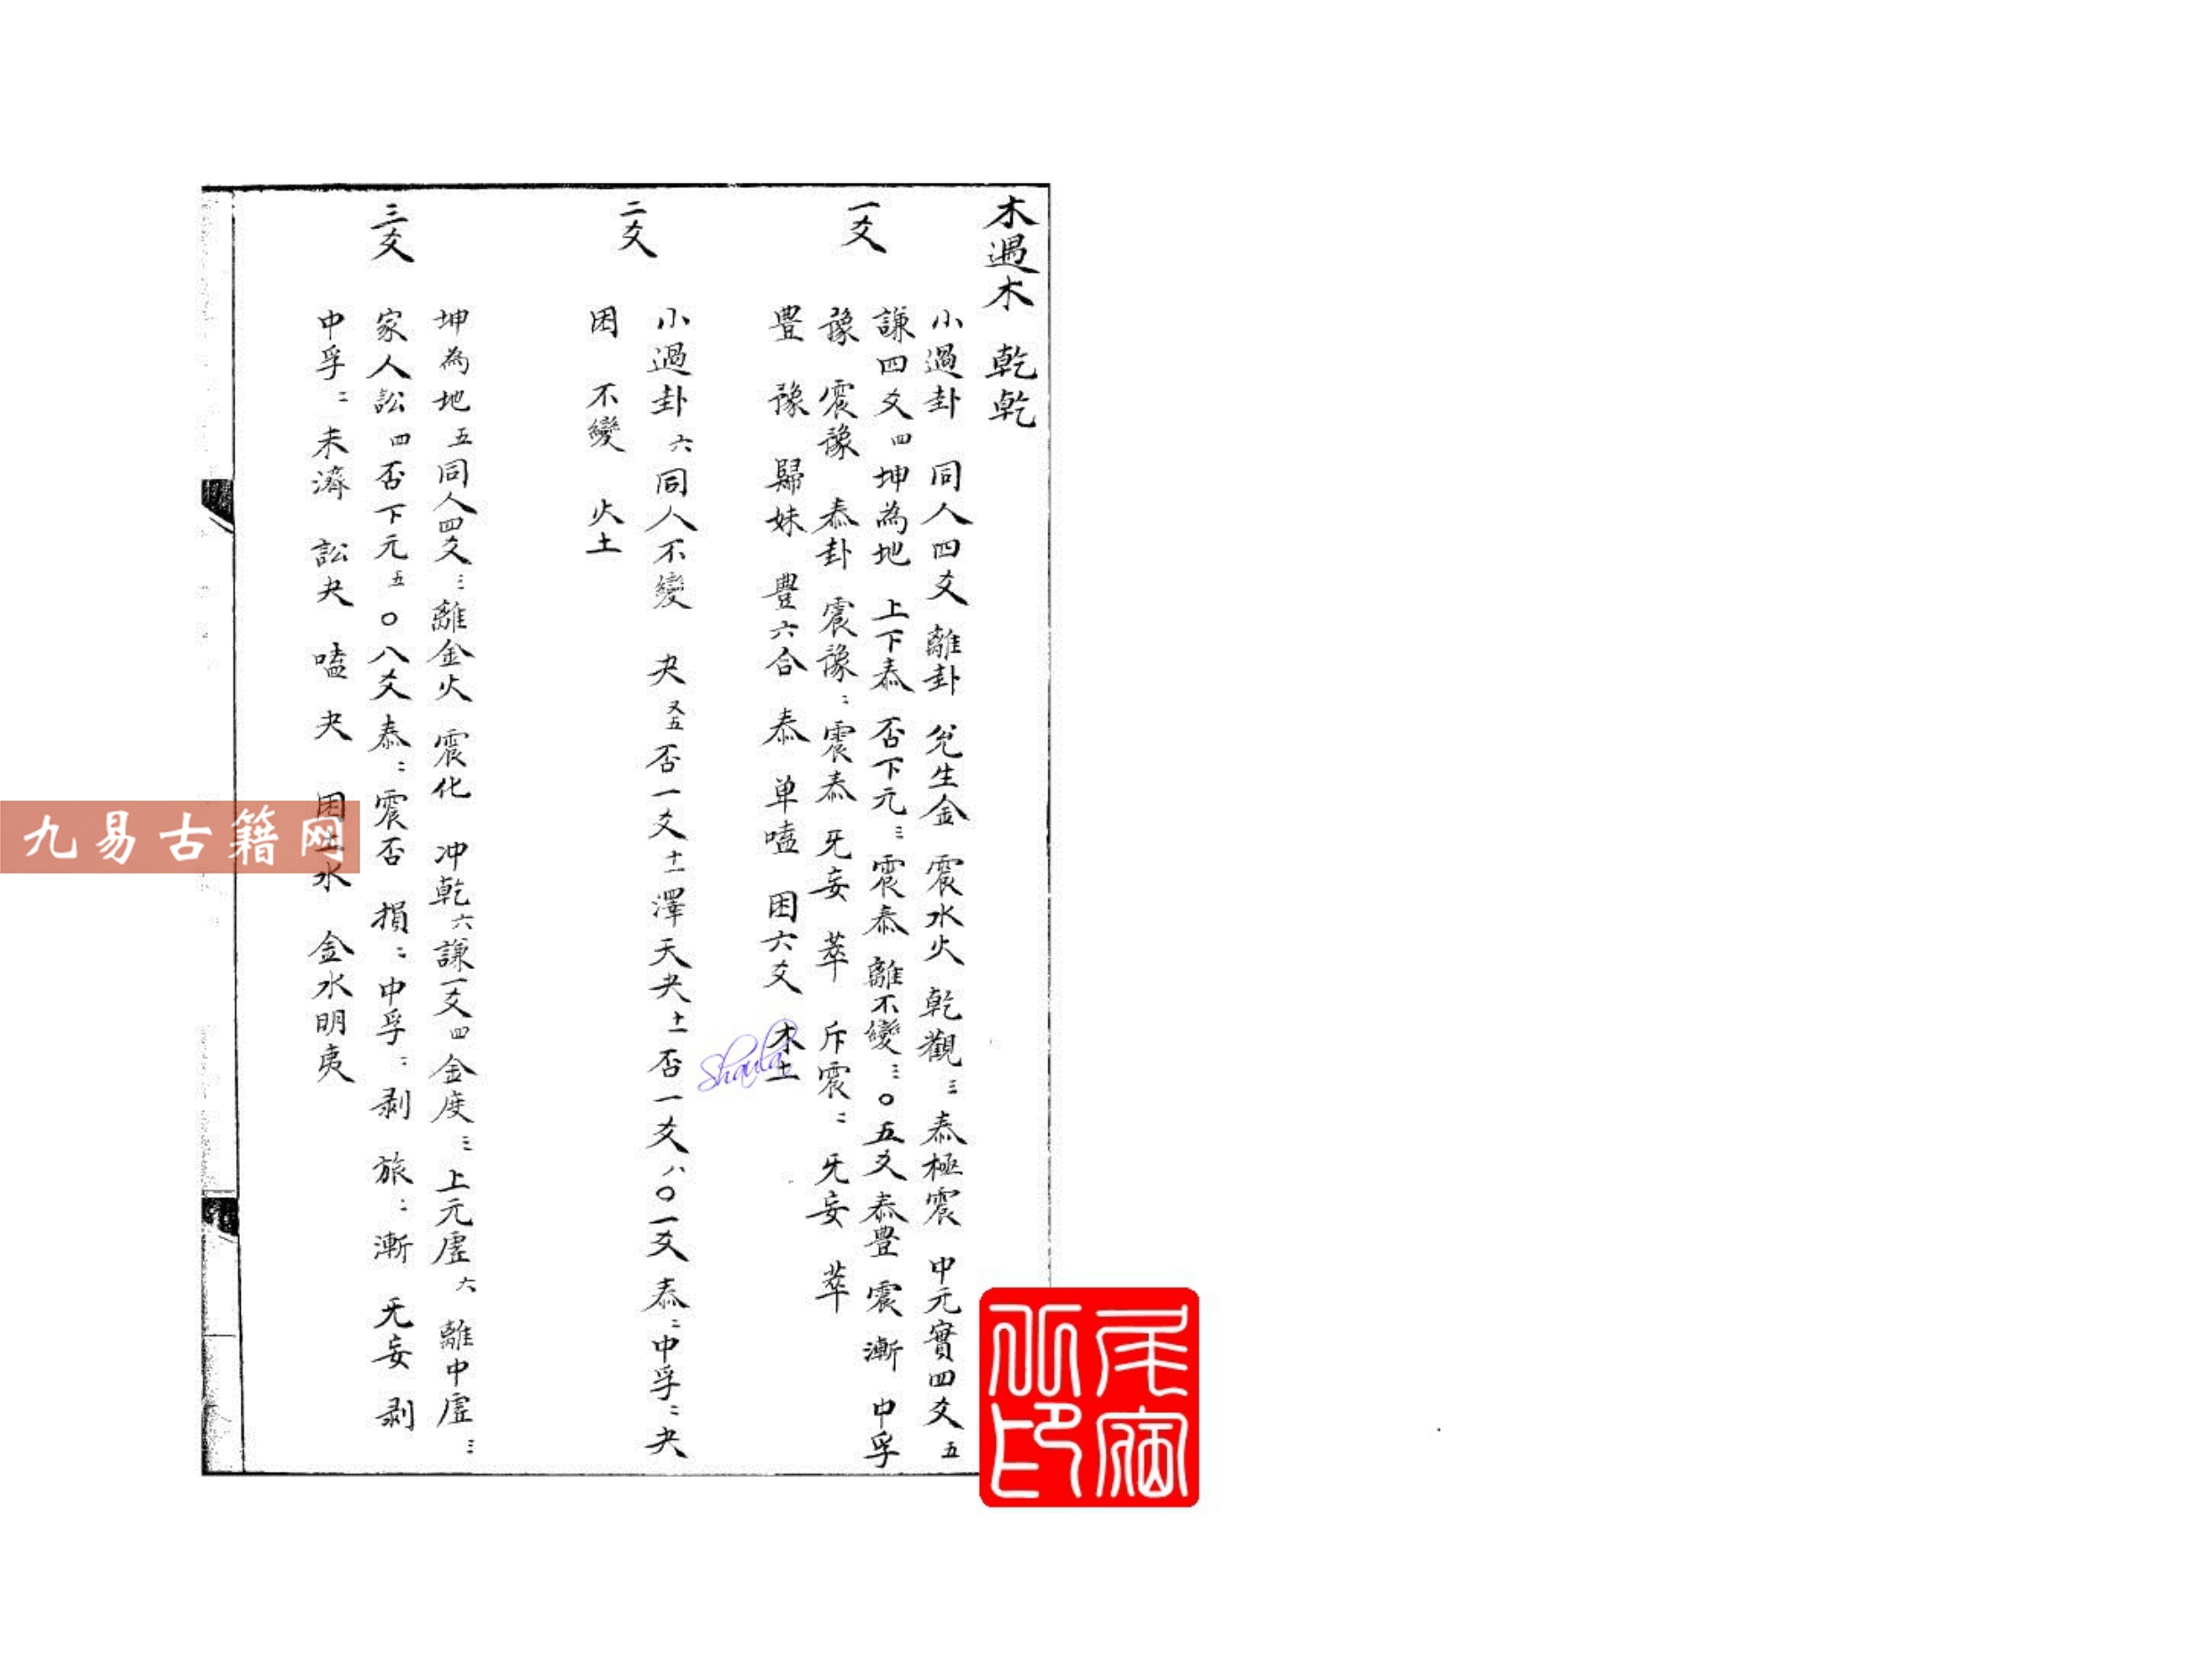 木過木 乾乾
小過卦 同人四爻 離卦 兌生金 震水火 乾觀三 泰極震 中元實四爻五
一爻
謙四爻四 坤為地 上下泰 否下元三 震泰 離不變三 〇五爻泰豐 震 漸 中孚
豫 震豫 泰卦 震豫二 震泰 无妄 萃 斥震二 无妄 萃
豊 豫 歸妹 豊六合 泰 单嗑 困六爻 木土
二爻
小過卦六 同人不變 夬 又五 否一爻十一 澤天夬十一 否一爻八 〇一爻泰二 中孚二 夬
困 不變 火土
三爻
坤為地五 同人四爻三 離金火 震化 冲乾六 謙一爻四 金度三 上元虛六 離中虛三
家人訟四 否下元五 〇八爻泰二 震否 損二 中孚二 剥 旅二 漸 无妄 剥
中孚二 未濟 訟夬 嗑 夬 困土水 金水明夷
九易古籍网
Shaula